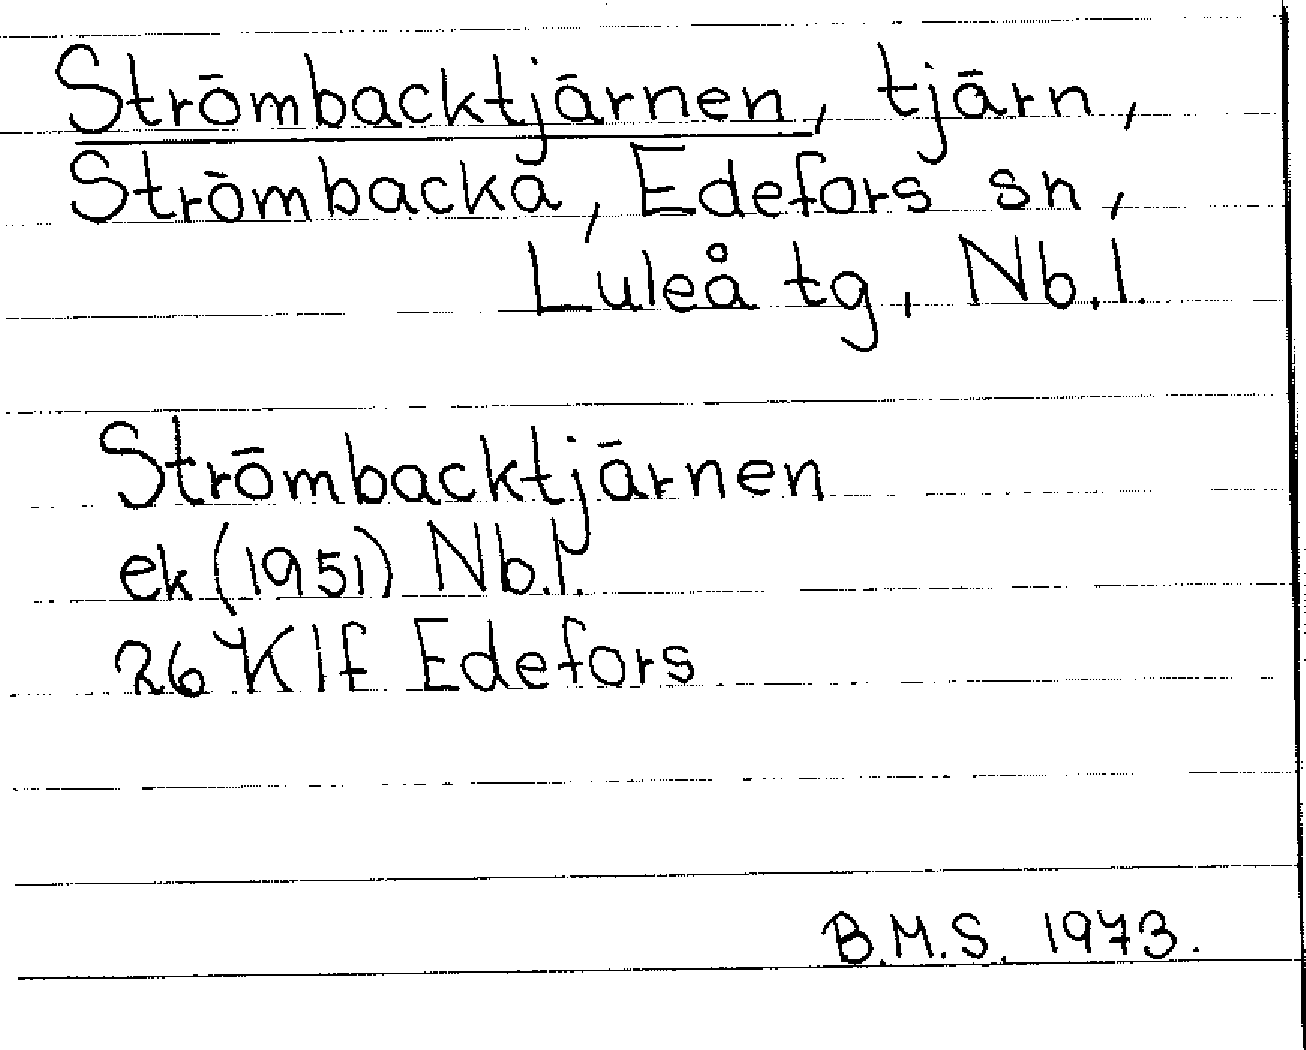 Strömbacktjärnen, tjärn,
Strömbacka, Edefors sn,
Luleå tg, Nb.l.
Strömbacktjärnen
ek (1951) Nb.l.
26 K l f Edefors
B.M.S. 1973.